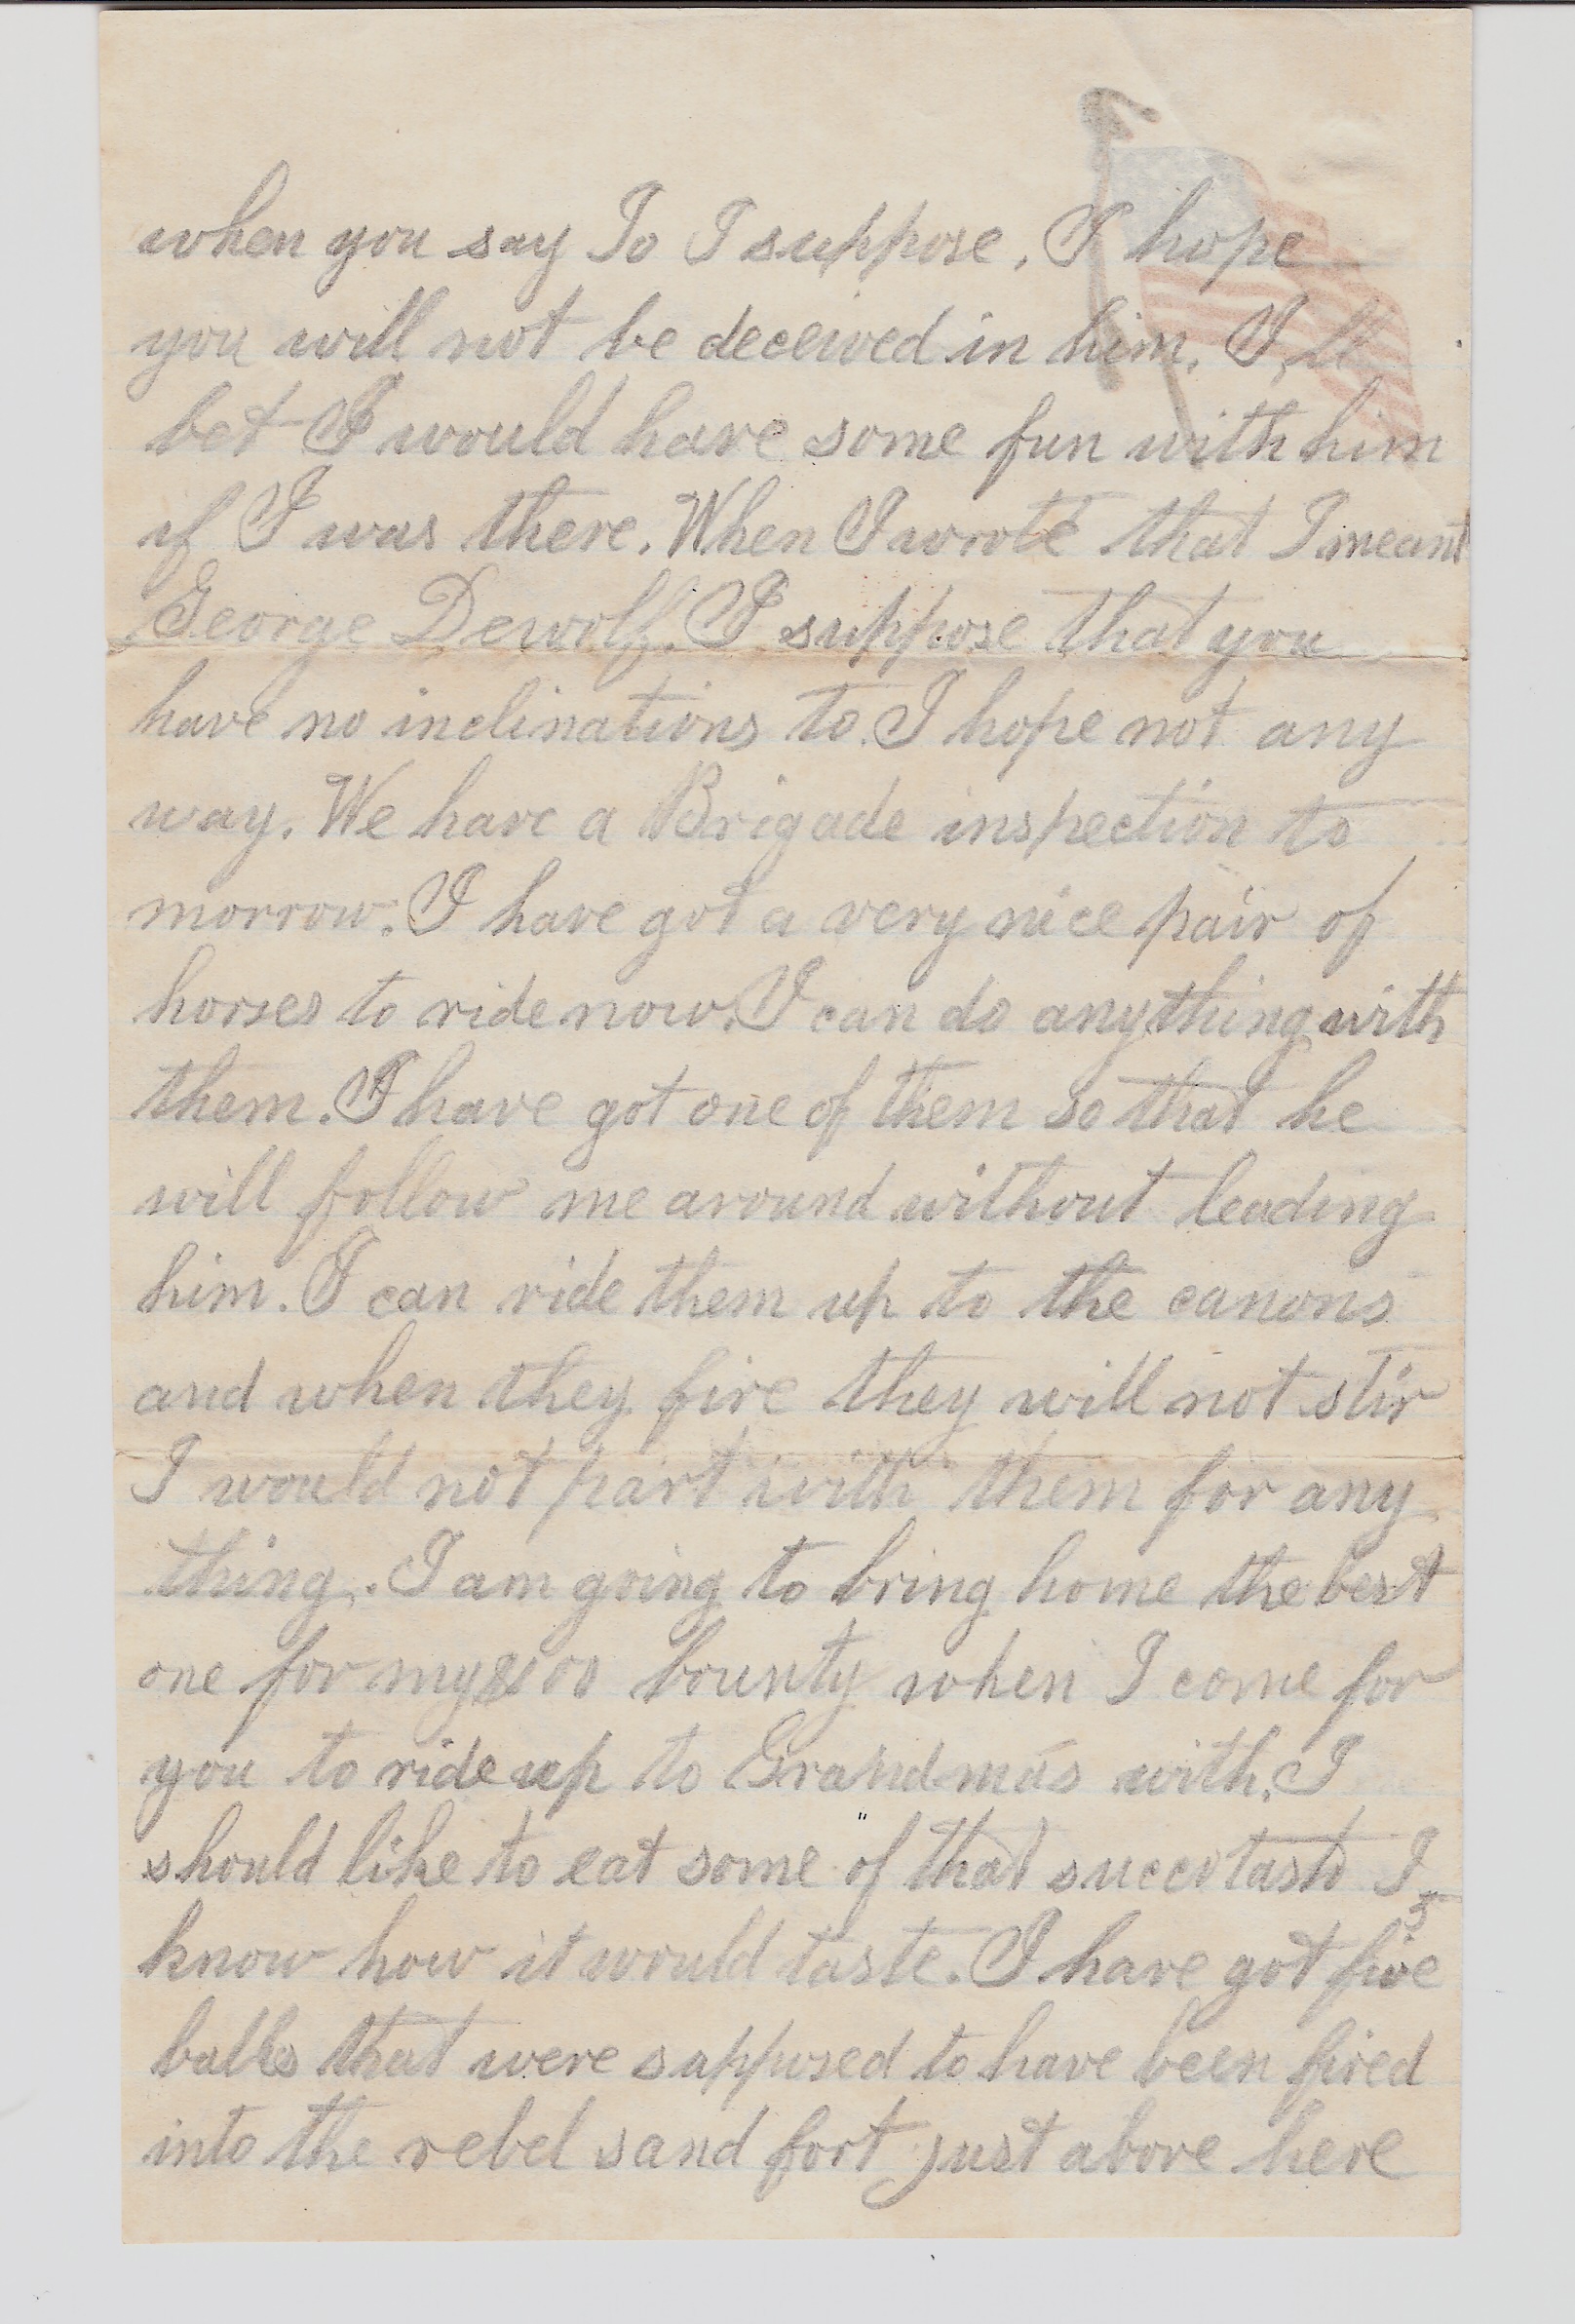 when you say Jo I suppose. I hope
you will not be deceived in him. I,ll
bet I would have some fun with him
if I was there. When I wrote that I meant
George Dewolf. I suppose that you
have no inclinations to. I hope not any
way. We have a Brigade inspection to
morrow. I have got a very nice pair of
horses to ride now. I can do anything with
them. I have got one of them so that he
will follow me around without leading
him. I can ride them up to the canons
and when they fire they will not stir
I would not part with them for any
thing. I am going to bring home the best
one for my $100 bounty when I come for
you to ride up to Grandma's with. I
should like to eat some of that succotash I
know how it would taste. I have got five
5
balls that were supposed to have been fired
into the rebel sand fort just above here